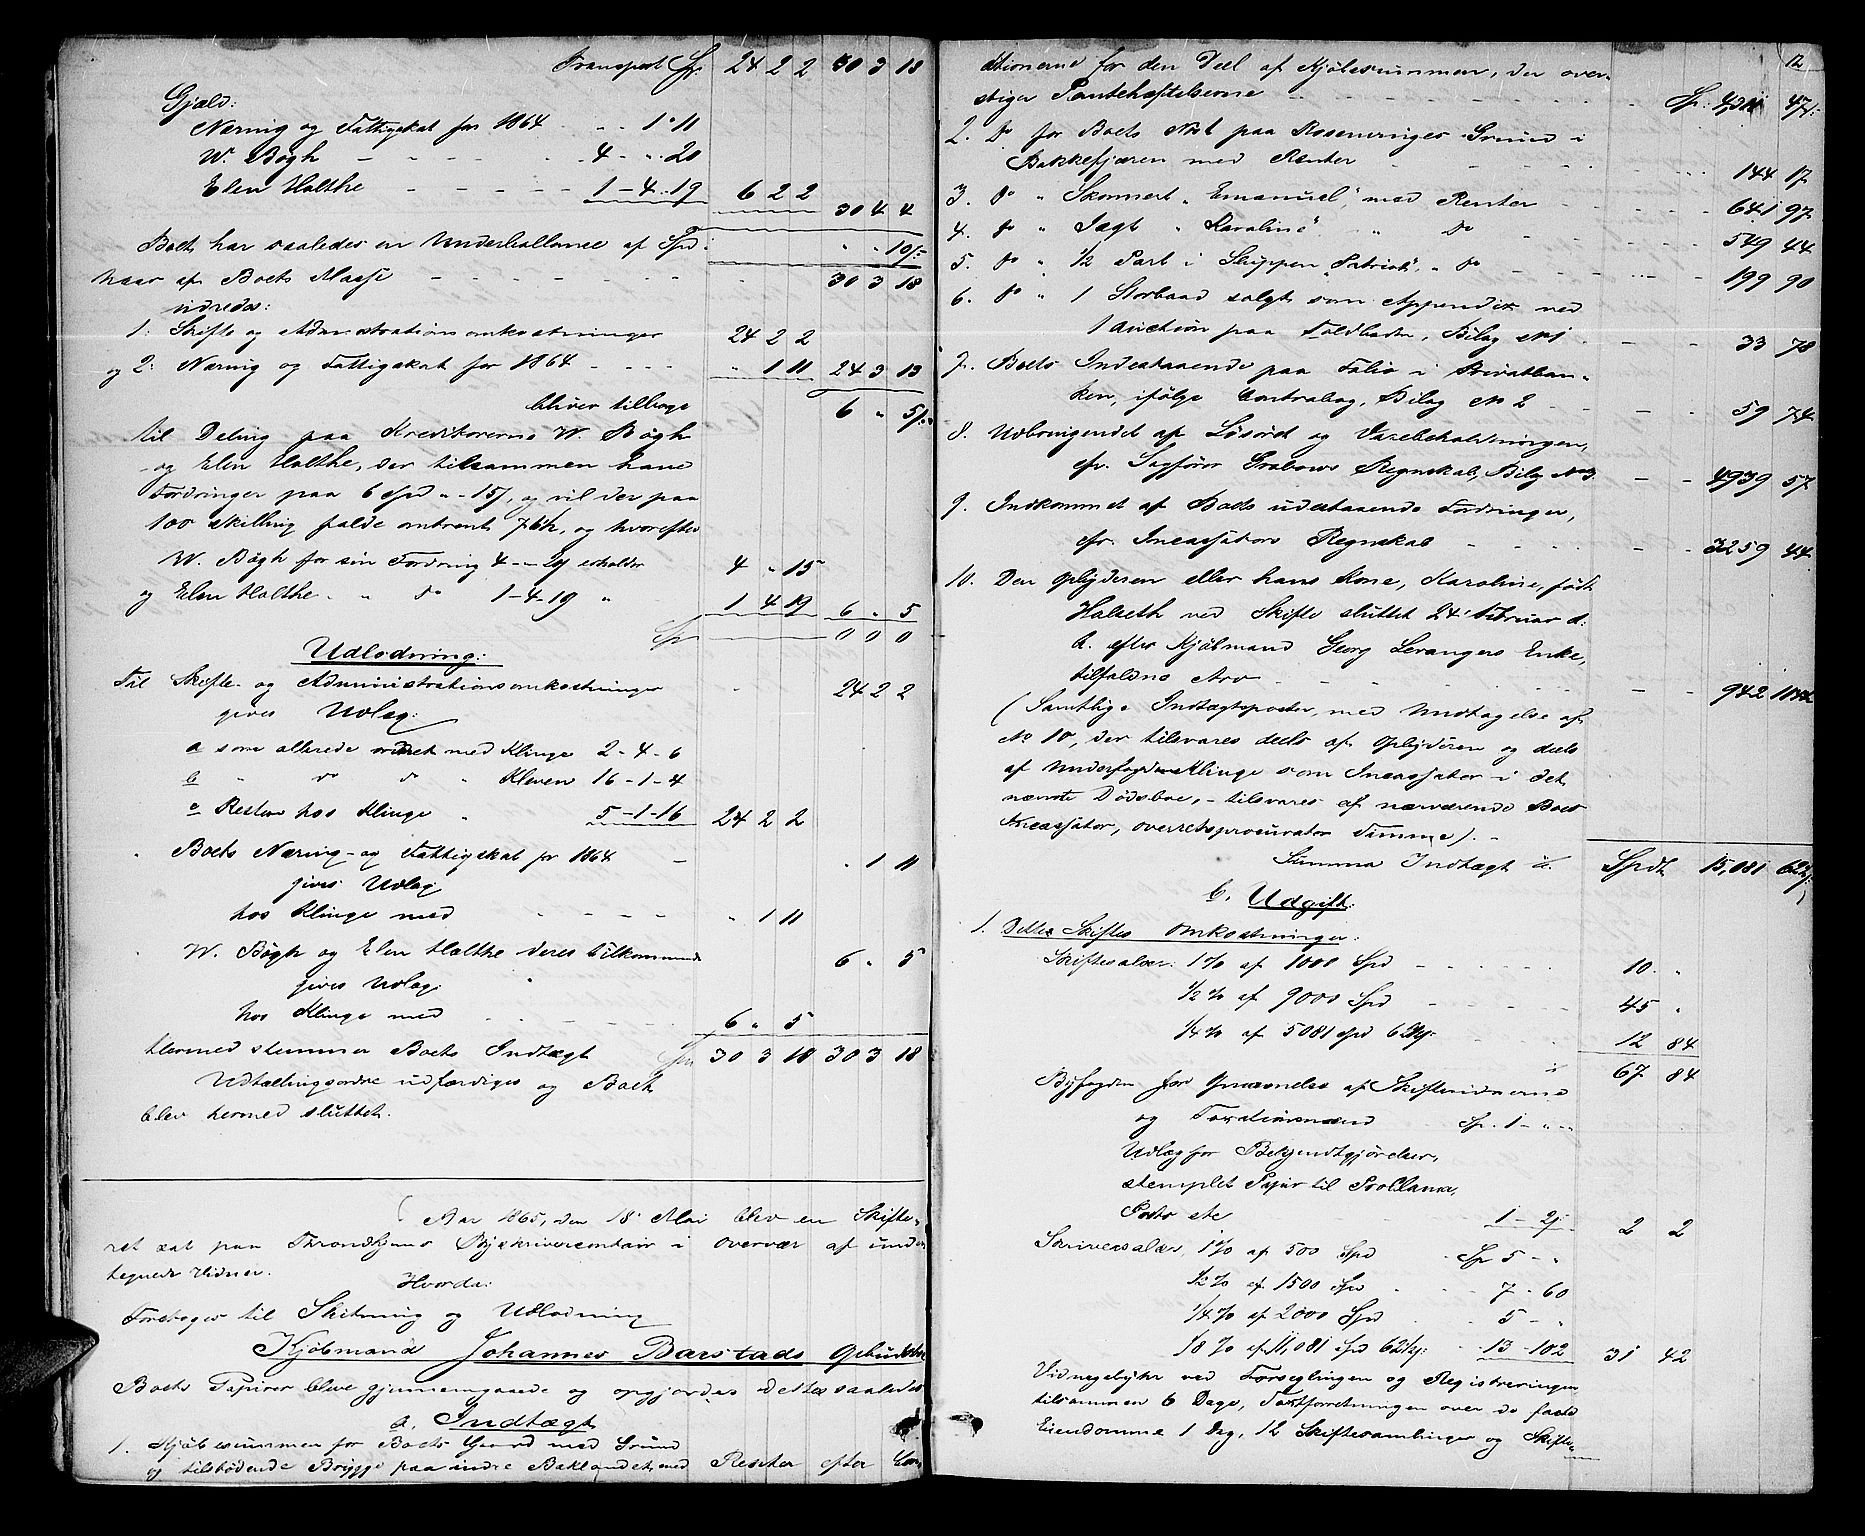 Transport Sp. 24 2 2 30 3 18
Gjæld:
Næring og Fattigskat for 1864 " 1 " 11
W. Bøgh 4 " 20
Elen Halthe 1 - 4 - 19 6 2 2
30 4 4
Boets har saaledes en Underballance af Spd: " " 10 s:
naar af Boets Masse 30 3 18
udredes:
1. Skifte og Administrationsomkostninger 24 2 2
og 2. Næring og Fattigskat for 1864 " 1 11 24 3 13
bliver tilbage 6 " 5 s:
til Deling paa Kreditorerne W. Bøgh
og Elen Halthe, der tilsammen have
Fordringer paa 6 Spd " - 15 s, og vil der paa
100 Skilling falde omtrent, og hvorefter
W. Bøgh for sin Fordring 4 - " - 20 erholder 4 " 15
og Elen Halthe " " do 1 - 4 - 19 " 1 4 19 6 " 5
Sp 0 0 0
Udlodning:
Til Skifte- og Administrationsomkostninger 24 2 2
gives Udlæg:
a som allerede med Klinge 2 - 4 - 6
b " do do " Kleven 16 - 1 - 4
c Resten hos Klinge " 5 - 1 - 16 24 2 2
Boets Næring- og Fattigskat for 1864 " 1 11
gives Udlæg
hos Klinge med " 1 11
W. Bøgh og Elen Halthe deres tilkommende 6 " 5
gives Udlæg
hos Klinge med 6 " 5
Hermed stemmer Boets Indtægt Sp 30 3 18 30 3 18
Udtællingsordre udfærdiges og Boet
blev hermed sluttet.
Aar 1865, den 18 Mai blev en Skifte-
ret sat paa Throndhjems Byskrivercontoir i Overvær af under
tegnede Vidner.
Hvorda:
Foretoges til Slutning og Udlodning
Kjøbmand Johannes Barstads Opbudsbo
Boets Papirer bleve gjennemgaaede og opgjordes dette saaledes
a. Indtægt
1. Kjøbesummen for Boets Gaard med Grund
og tilstødende Brygge paa indre Baklandet, med Renter efter Con-
12
ditionerne for den Deel af Kjøbesummen, der over-
stiger Pantehæftelserne Sp: 47 s:
2. do for Boets Nøst paa Roseneringes Grund i
Bakkefjæren med Renter 144 17
3. do " Skonnert "Emanuel", med Renter 641 97
4. do " Jagt "Karoline" " do 549 44
5. do " 1/2 Part i Skippen "Patriot", " do 199 90
6. do " 1 Storbaad solgt som Appendix ved
Auction paa Toldboden, Bilag No 1 33 78
7. Boets Indestaaende paa Folio i Privatban-
ken, ifølge Contrabog, Bilag No 2 59 74
8. Udbringendet af Løsøret og Varebeholdningen,
cfr. Sagfører Grabows Regnskab, Bilag No 3 4939 57
9. Indkommet af Boets udestaaende Fordringer,
cfr. Incassators Regnskab 3259 44
10. Den Opbyderen eller hans Kone, Karoline, født
Halseth ved Skifte sluttet 24 Februar d:
A. efter Kjøbmand Georg Levangers Enke,
tilfaldne Arv 942
(Samtlige Indtægtsposter, med Undtagelse af
No 10, der tilsvares deels af Opbyderen og deels
af Underfogden Klinge som Incassator i det
nævnte Dødsboe, - tilsvares af nærværende Boes
Incassator, Overretsprocurator Timme). -
Summa Indtægt Spd 15,081 62 s:
b. Udgift:
1. Dette Skiftes Omkostninger:
Skiftesalær: 1 % af 1000 Spd 10 "
1/2 % af 9000 Spd 45 "
1/4 % af 5081 Spd 62 s: 12 84
67 84
Byfogden for Opnævnelse af Skiftevidnerne
og Taxationsmænd Sp. 1 - " - "
Udlæg for Bekjendtgjørelser,
stemplet Papir til Proklama,
Porto etc 1 - 2 s: 2 2
Skriversalær, 1 % af 500 Spd Sp 5 - "
1/2 % af 1500 Spd 7 - 60
1/4 % af 2000 Spd 5 - "
1/8 % af 11,081 Spd 62 s: 13 - 102 31 42
Vidnegebyhr ved Forseglingen og Registreringen
tilsammen 6 Dage, Taxtforretningen over de faste
Eiendomme 1 Dag, 12 Skiftesamlinger og Skifte-